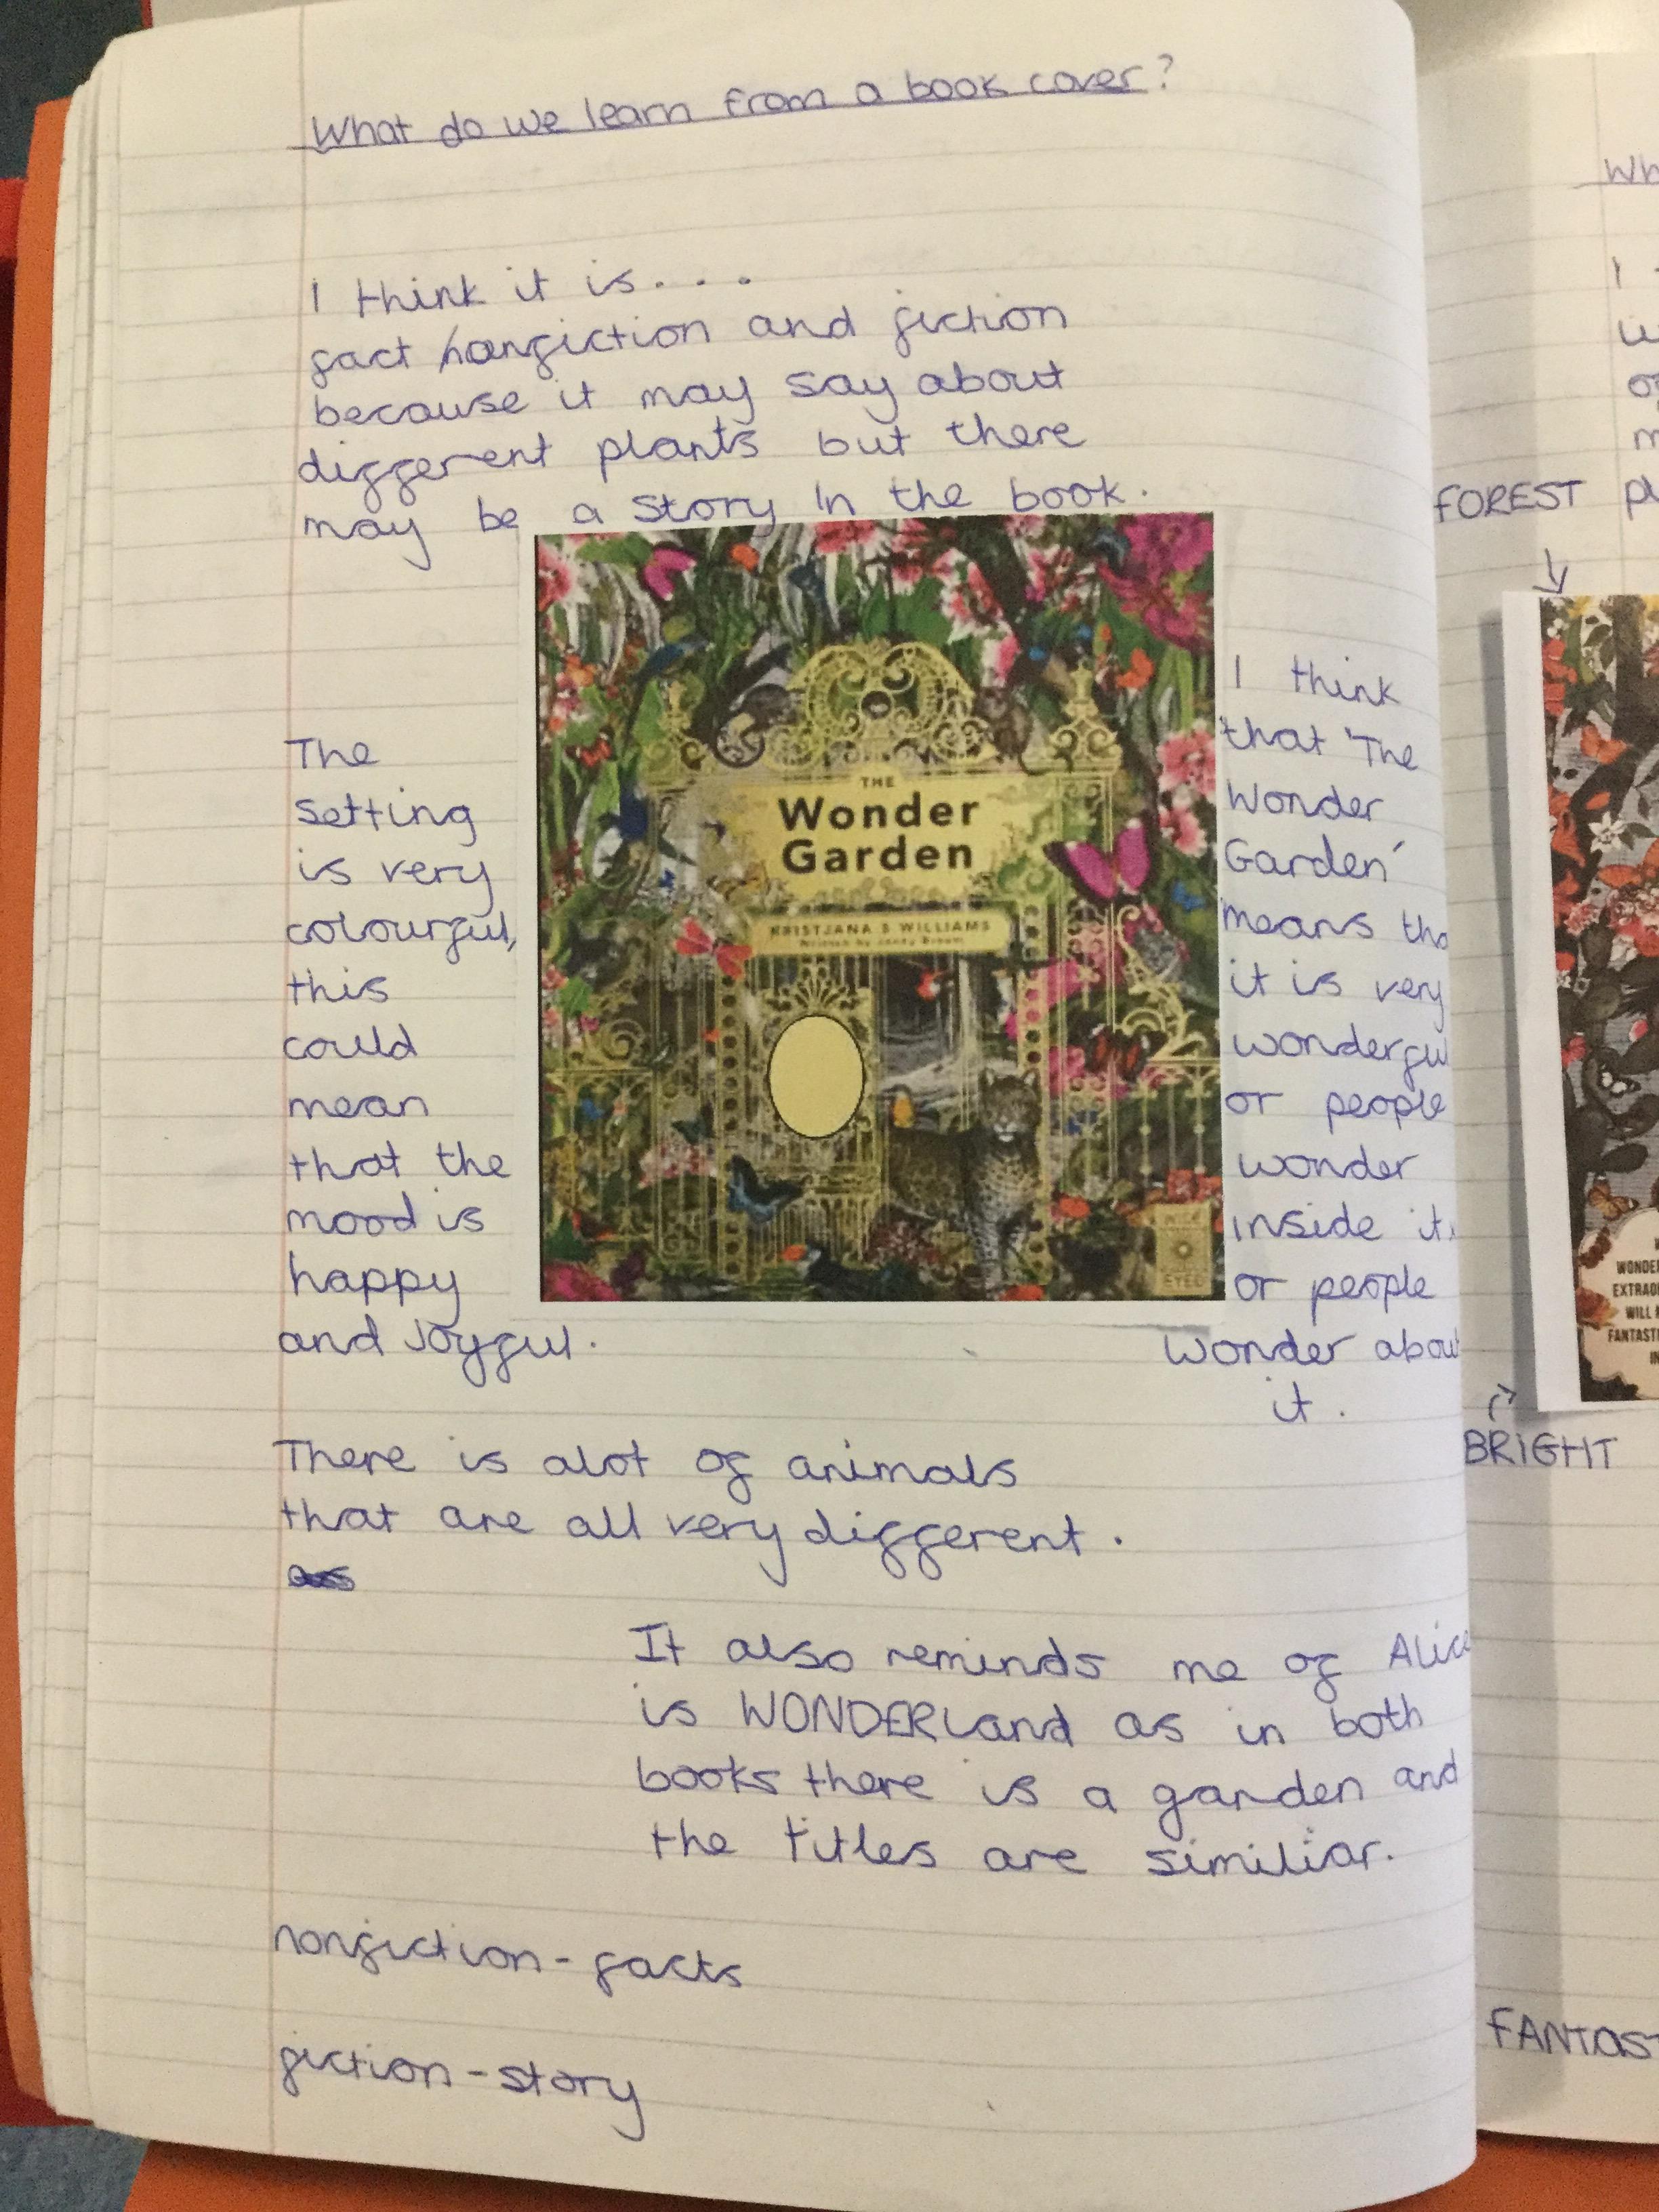 What do we learn from a book cover?
I think it is....
fact /nonfiction and fiction
because it may say about
different plants but there
may be a story in the book.
The
setting
is very
colourful,
this
could
mean
that the
mood is
happy
and Joyful.
THE
Wonder
Garden
KRISTJANA S WILLIAMS
Written by Jenny Broom
WIDE
EYED
I think
that 'The
Wonder
Garden'
means tha
it is very
wonderfu
or people
wonder
inside it,
or people
wonder abou
it.
There is alot of animals
that are all very different.
It also reminds me of Alice
is WONDERLand as in both
books there is a garden and
the titles are similiar.
nonfiction - facts
fiction - story
Wh
I
FOREST pl
WONDE
EXTRAO
WILL
FANTAST
IN
BRIGHT
FANTAS